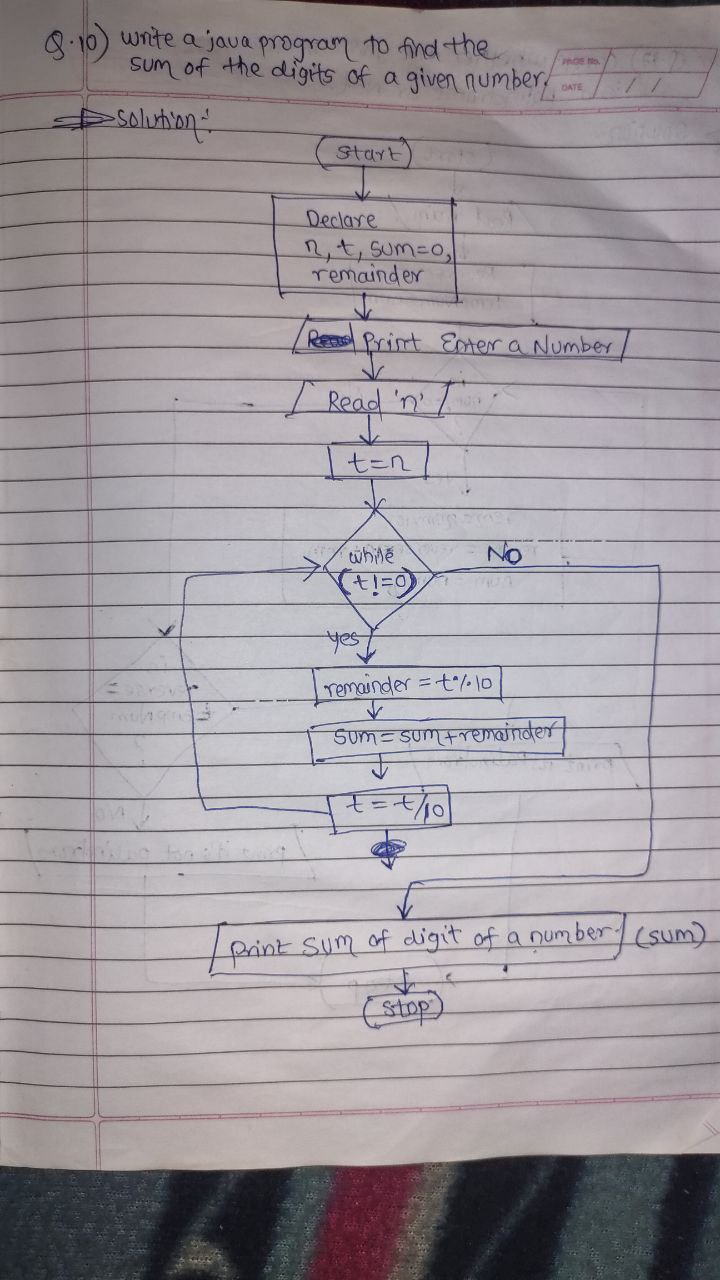 Q.10) write a java program to find the
sum of the digits of a given number.
PAGE No.
DATE / /
Solution:
Start
Declare
n, t, sum=0,
remainder
Print Enter a Number
Read 'n'
t=n
while
(t!=0)
No
Yes
remainder = t%10
Sum=sum+remainder
t=t/10
print sum of digit of a number. (sum)
Stop